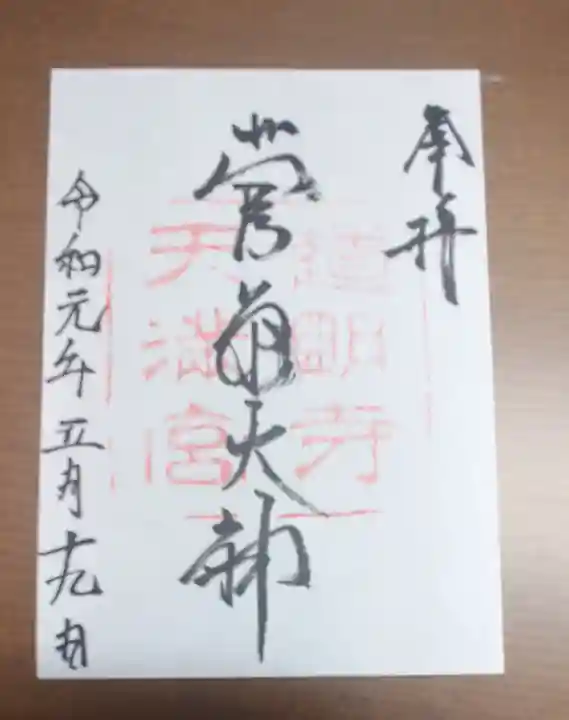 奉拝
菅天神
道明寺
天満宮
令和元年五月十九日